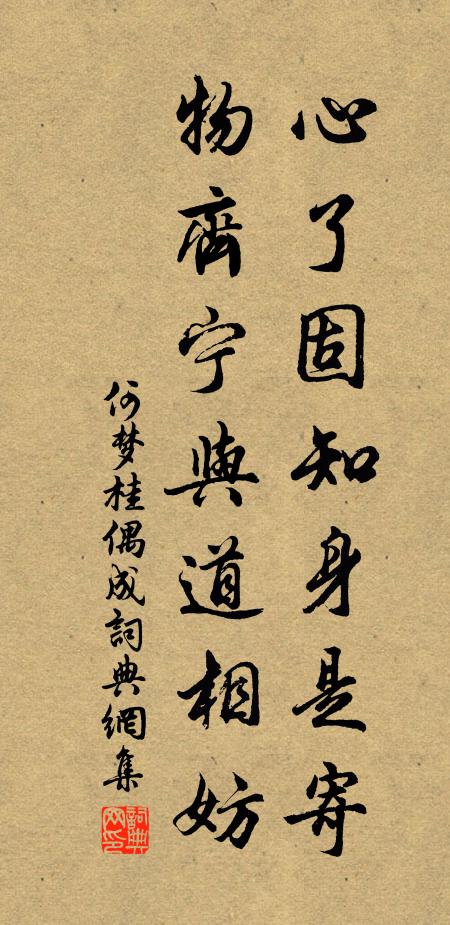 心了固知身是寄
物齊宁與道相妨
何梦桂偶成詞典網集
詞典网印